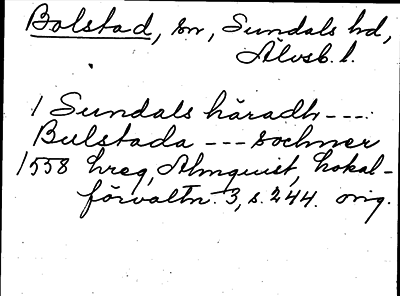 Bolstad, sn, Sundals hd,
Älvsb. l.
1 Sundals häradh ---
Bulstada --- sochner
1558 hreg, Almquist, Lokal-
förvaltn. 3, s. 244. orig.